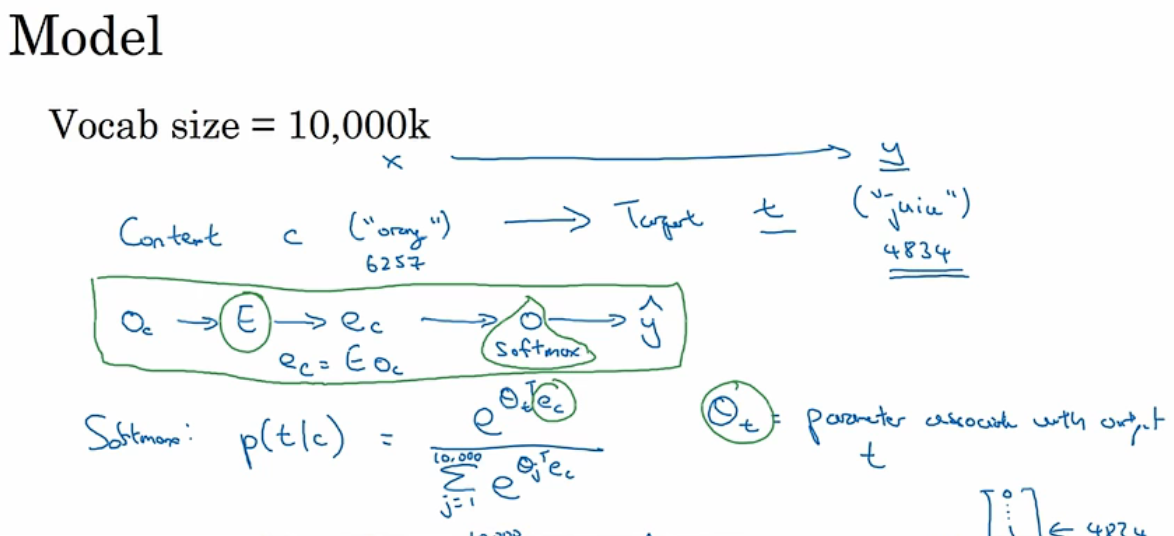 Model
Vocab size = 10,000k
x → y
Context c ("orange") → Target t ("juice")
6257 4834
O_c → E → e_c → O → ŷ
softmax
e_c = E O_c
Softmax: p(t|c) = e^{θ_t^T e_c} / Σ_{j=1}^{10,000} e^{θ_j^T e_c}
θ_t = parameter associated with output t
0
⋮
1 ← 4834
10,000